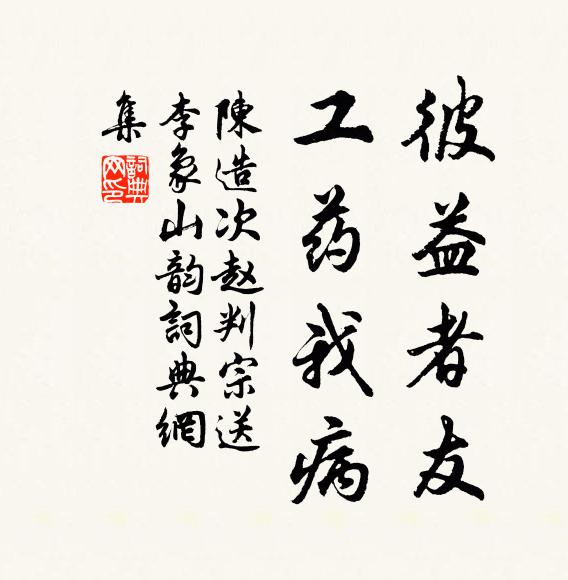 彼益者友
工药我病
陳造次赵判宗送
李象山韵詞典網
集
詞典
网印